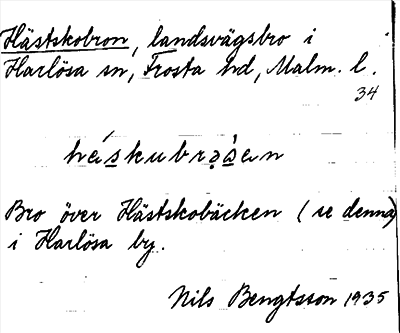 Hästskobron, landsvägsbro i
Harlösa sn, Frosta hd, Malm. l.
34
Bro över Hästskobäcken (se denna)
i Harlösa by.
Nils Bengtsson 1935